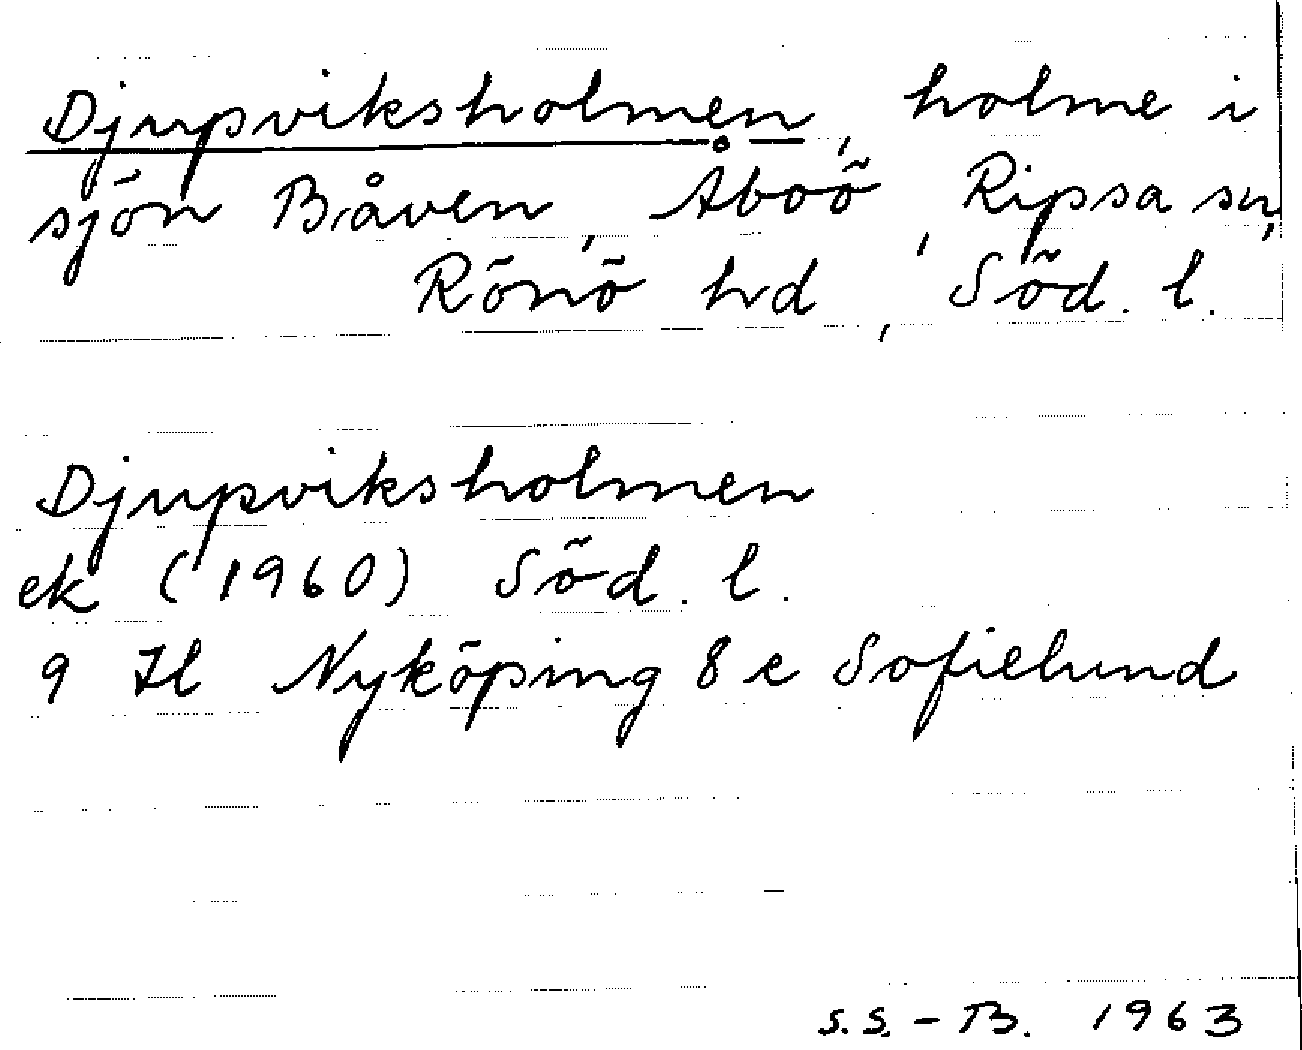 Djupviksholmen, holme i
sjön Båven, Åboö, Ripsa sn,
Rönö hd, Söd. l.
Djupviksholmen
ek (1960) Söd. l.
9 H Nyköping 8 e Sofielund
S.S. - B. 1963